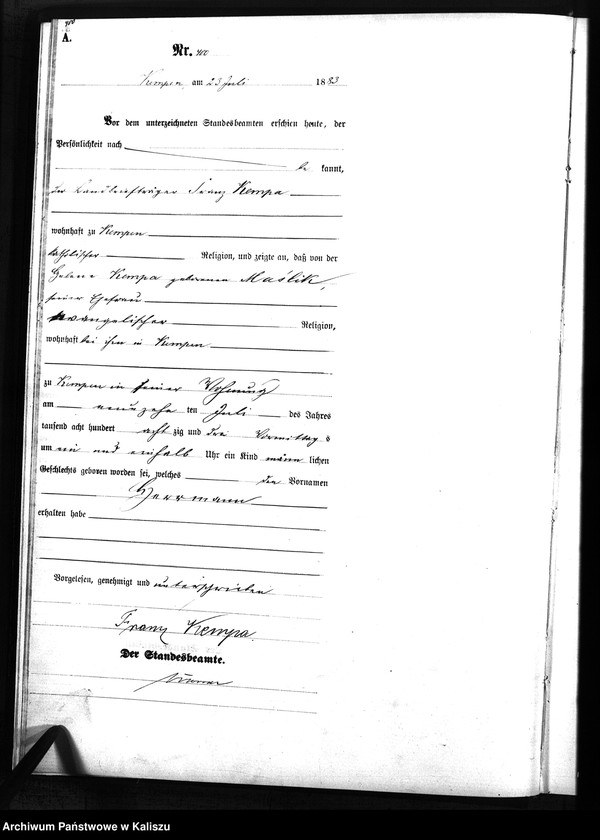 A.
Nr. 400
Kempen, am 23 Juli 1883
Vor dem unterzeichneten Standesbeamten erschien heute, der
Persönlichkeit nach
be kannt,
der Landbriefträger Franz Kempa
wohnhaft zu Kempen
katholischer Religion, und zeigte an, daß von der
Helene Kempa geborenen Maślik,
seiner Ehefrau
evangelischer Religion,
wohnhaft bei ihm in Kempen
zu Kempen in seiner Wohnung
am neunzehn ten Juli des Jahres
tausend acht hundert acht zig und drei Vormittag s
um ein und einhalb Uhr ein Kind männ lichen
Geschlechts geboren worden sei, welches den Vornamen
Herrmann
erhalten habe
Vorgelesen, genehmigt und unterschrieben
Franz Kempa.
Der Standesbeamte.
Archiwum Państwowe w Kaliszu